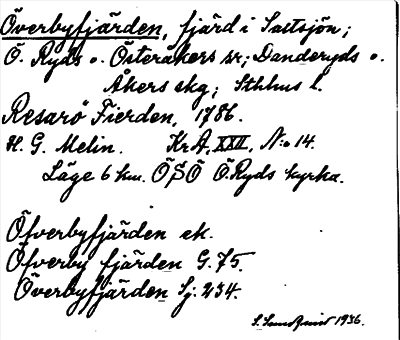 Överbyfjärden, fjärd i Saltsjön;
Ö. Ryds o. Österåkers sr; Danderyds o.
Åkers skg; Sthlms l.
Resarö Fierden, 1786.
H. G. Melin. KrA, XXII, N:o 14.
Läge 6 km. ÖSÖ Ö. Ryds kyrka.
Öfverbyfjärden ek.
Öfverby fjärden G. 75.
Överbyfjärden Sj: 234.
S. 1936.